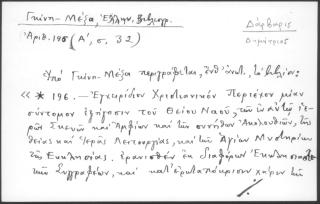 Γκίνη - Μέξα, Ἑλλην. Βιβλιογρ.
Δάρβαρις
Δημήτριος
Ἀριθ. 196 (Α', σ. 32)
Ὑπὸ Γκίνη - Μέξα περιγράφεται,
« * 196. — Ἐγχειρίδιον Χριστιανικὸν Περιέχον μίαν
σύντομον ἐξήγησιν τοῦ Θείου Ναοῦ, τῶν ἐν αὐτῷ ἱε-
ρῶν Σκευῶν καὶ Ἀμφίων καὶ τῶν συνήθων Ἀκολουθιῶν, τῆς
θείας καὶ Ἱερᾶς Λειτουργίας, καὶ τῶν Ἁγίων Μυστηρίων
τῆς Ἐκκλησίας. Ἐρανισθὲν ἐκ διαφόρων Ἐκκλησιαστι-
κῶν Συγγραφέων, καὶ κατ' ἐρωταπόκρισιν χάριν τῶν